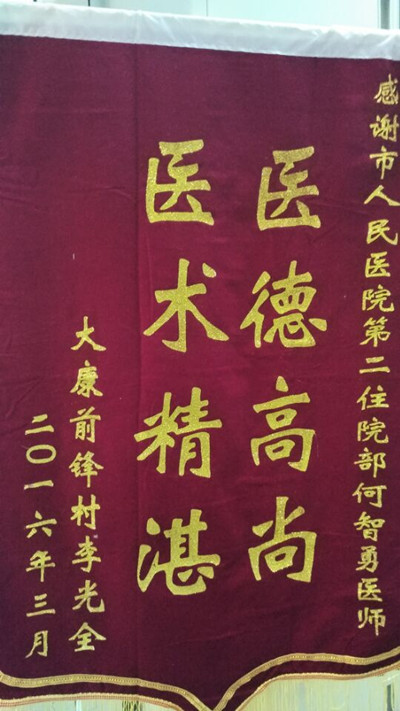 感谢市人民医院第二住院部何智勇医师
医德高尚
医术精湛
大康前锋村李光全
二〇一六年三月